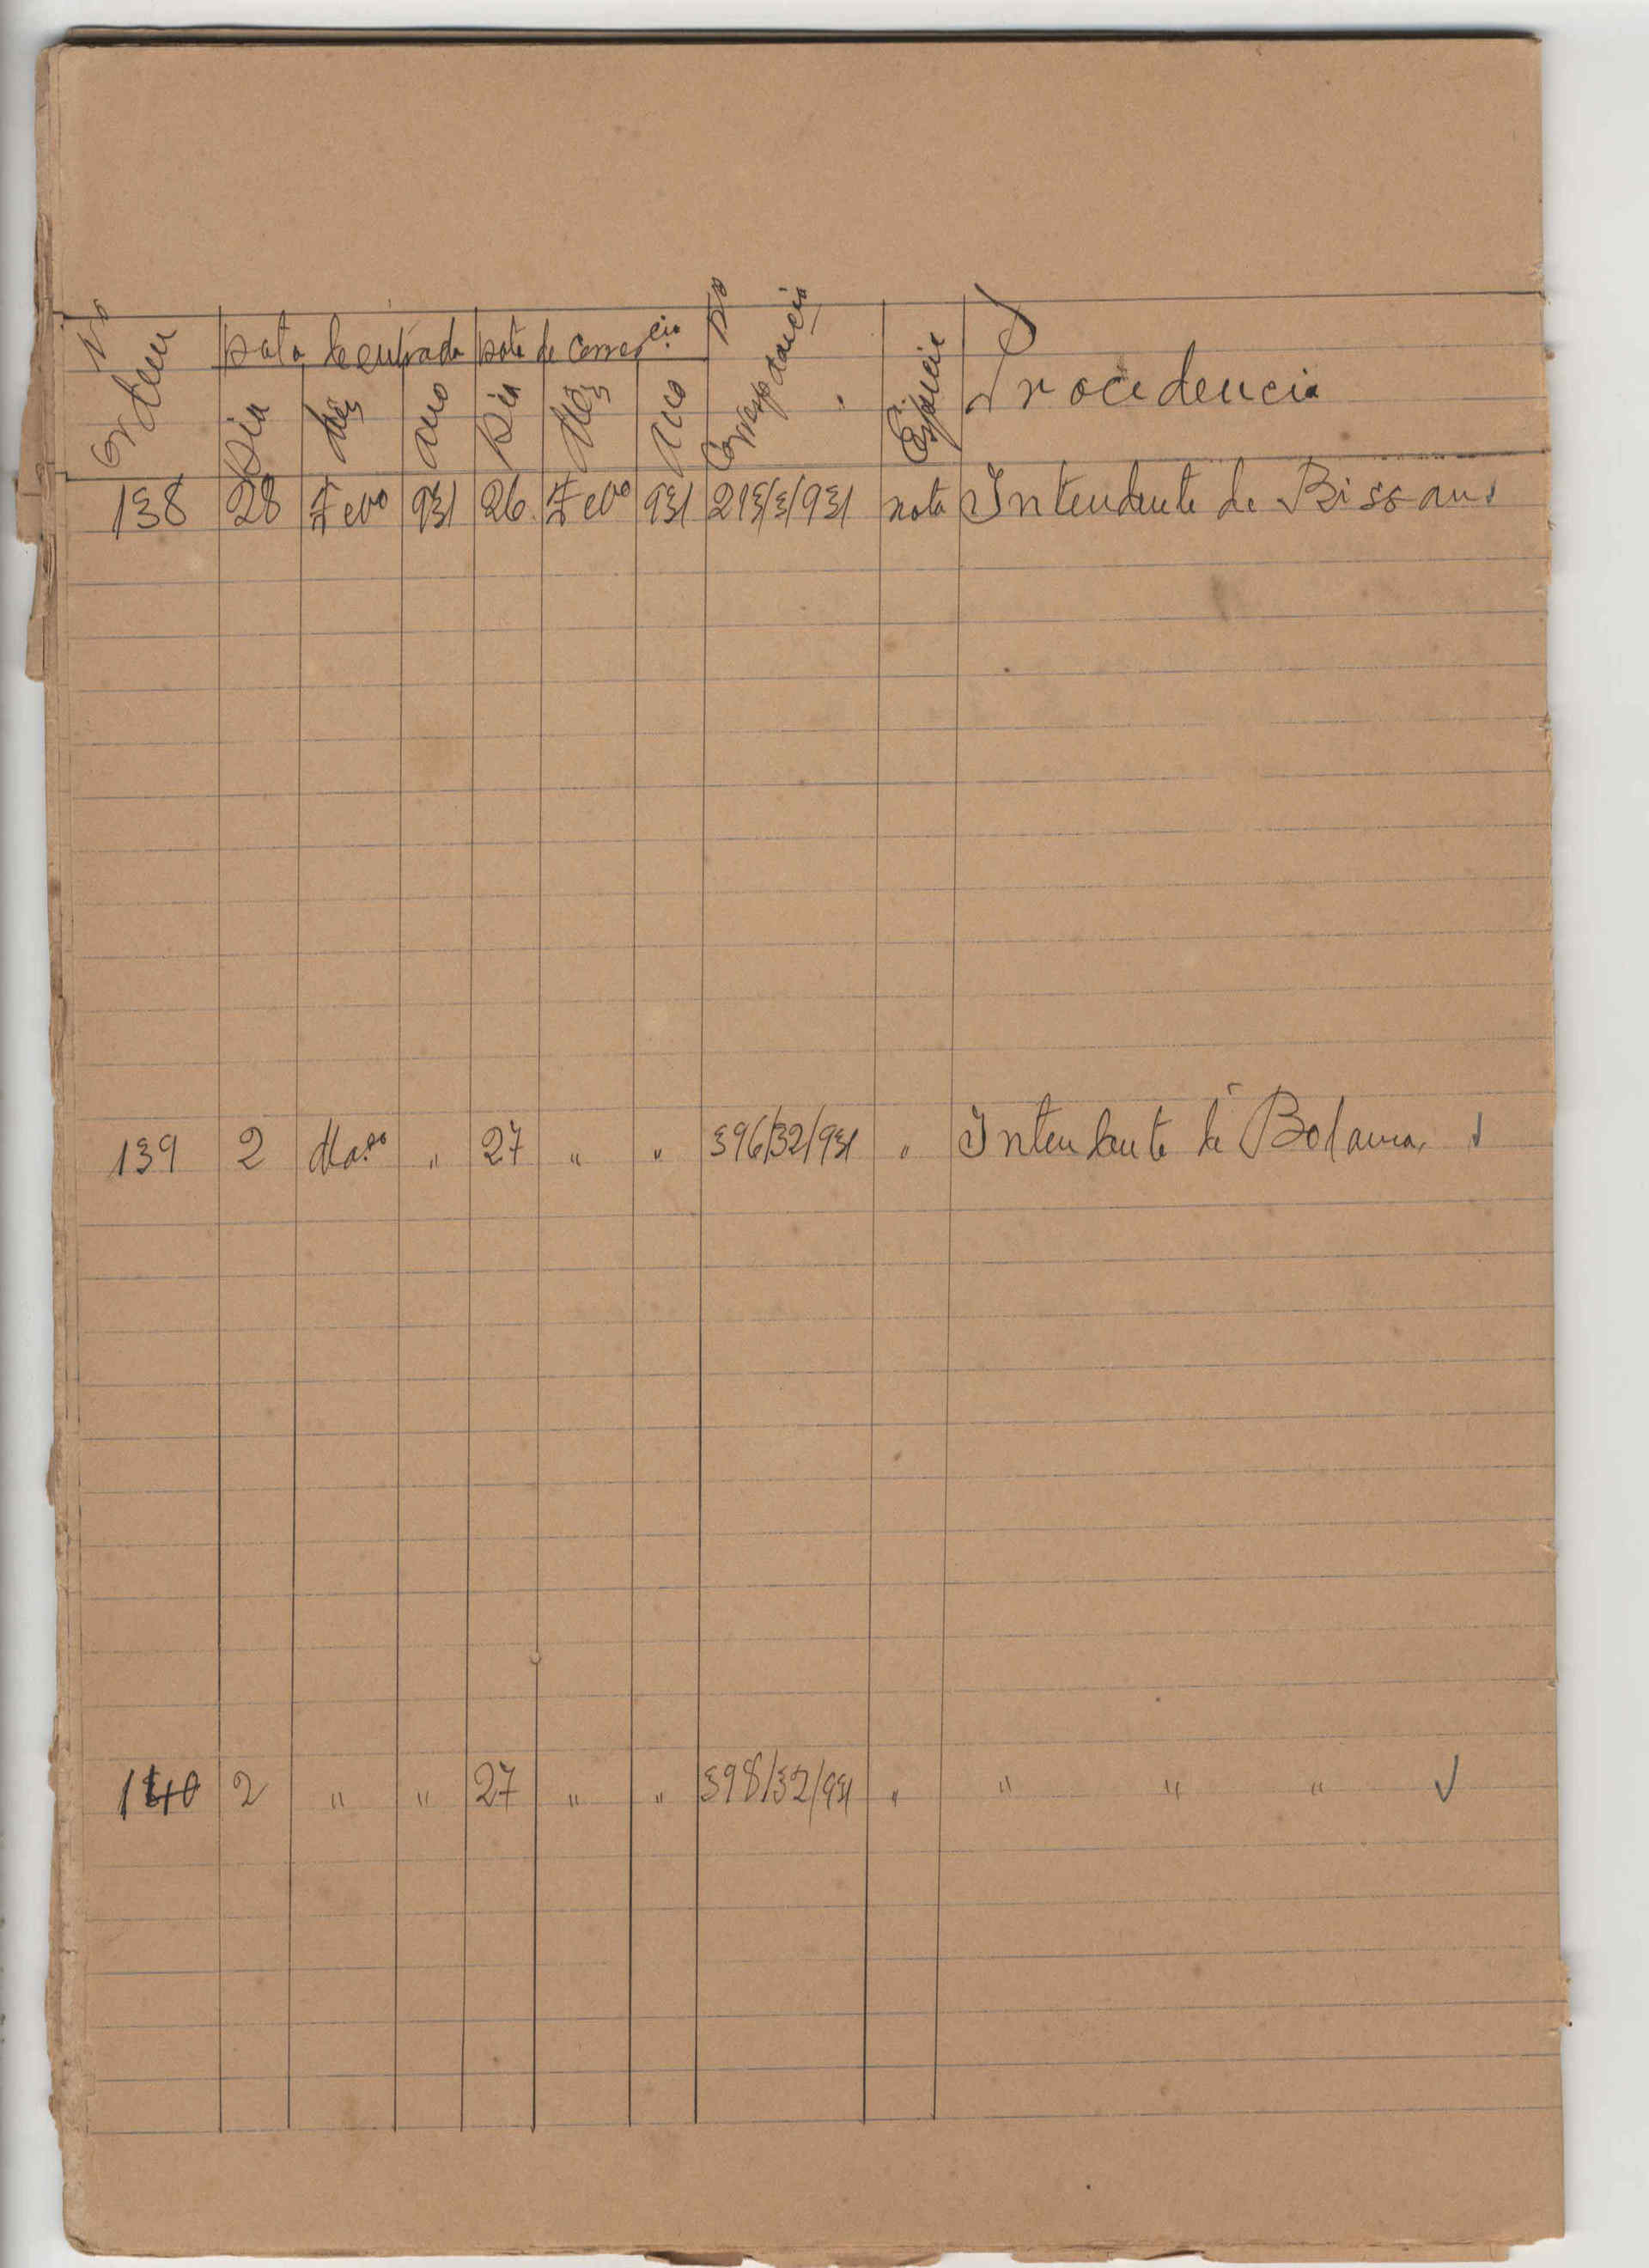 No Ordem | Data de entrada | Data de corres.cia | No Correspodancia | Espécie | Procedencia
Dia | Mês | Ano | Dia | Mês | Ano
138 | 28 | Fevo | 931 | 26 | Fevo | 931 | 213/3/931 | nota | Intendente de Bissau ✓
139 | 2 | Março | " | 27 | " | " | 396/32/931 | " | Intendente de Bolama ✓
140 | 2 | " | " | 27 | " | " | 398/32/931 | " | " " " ✓